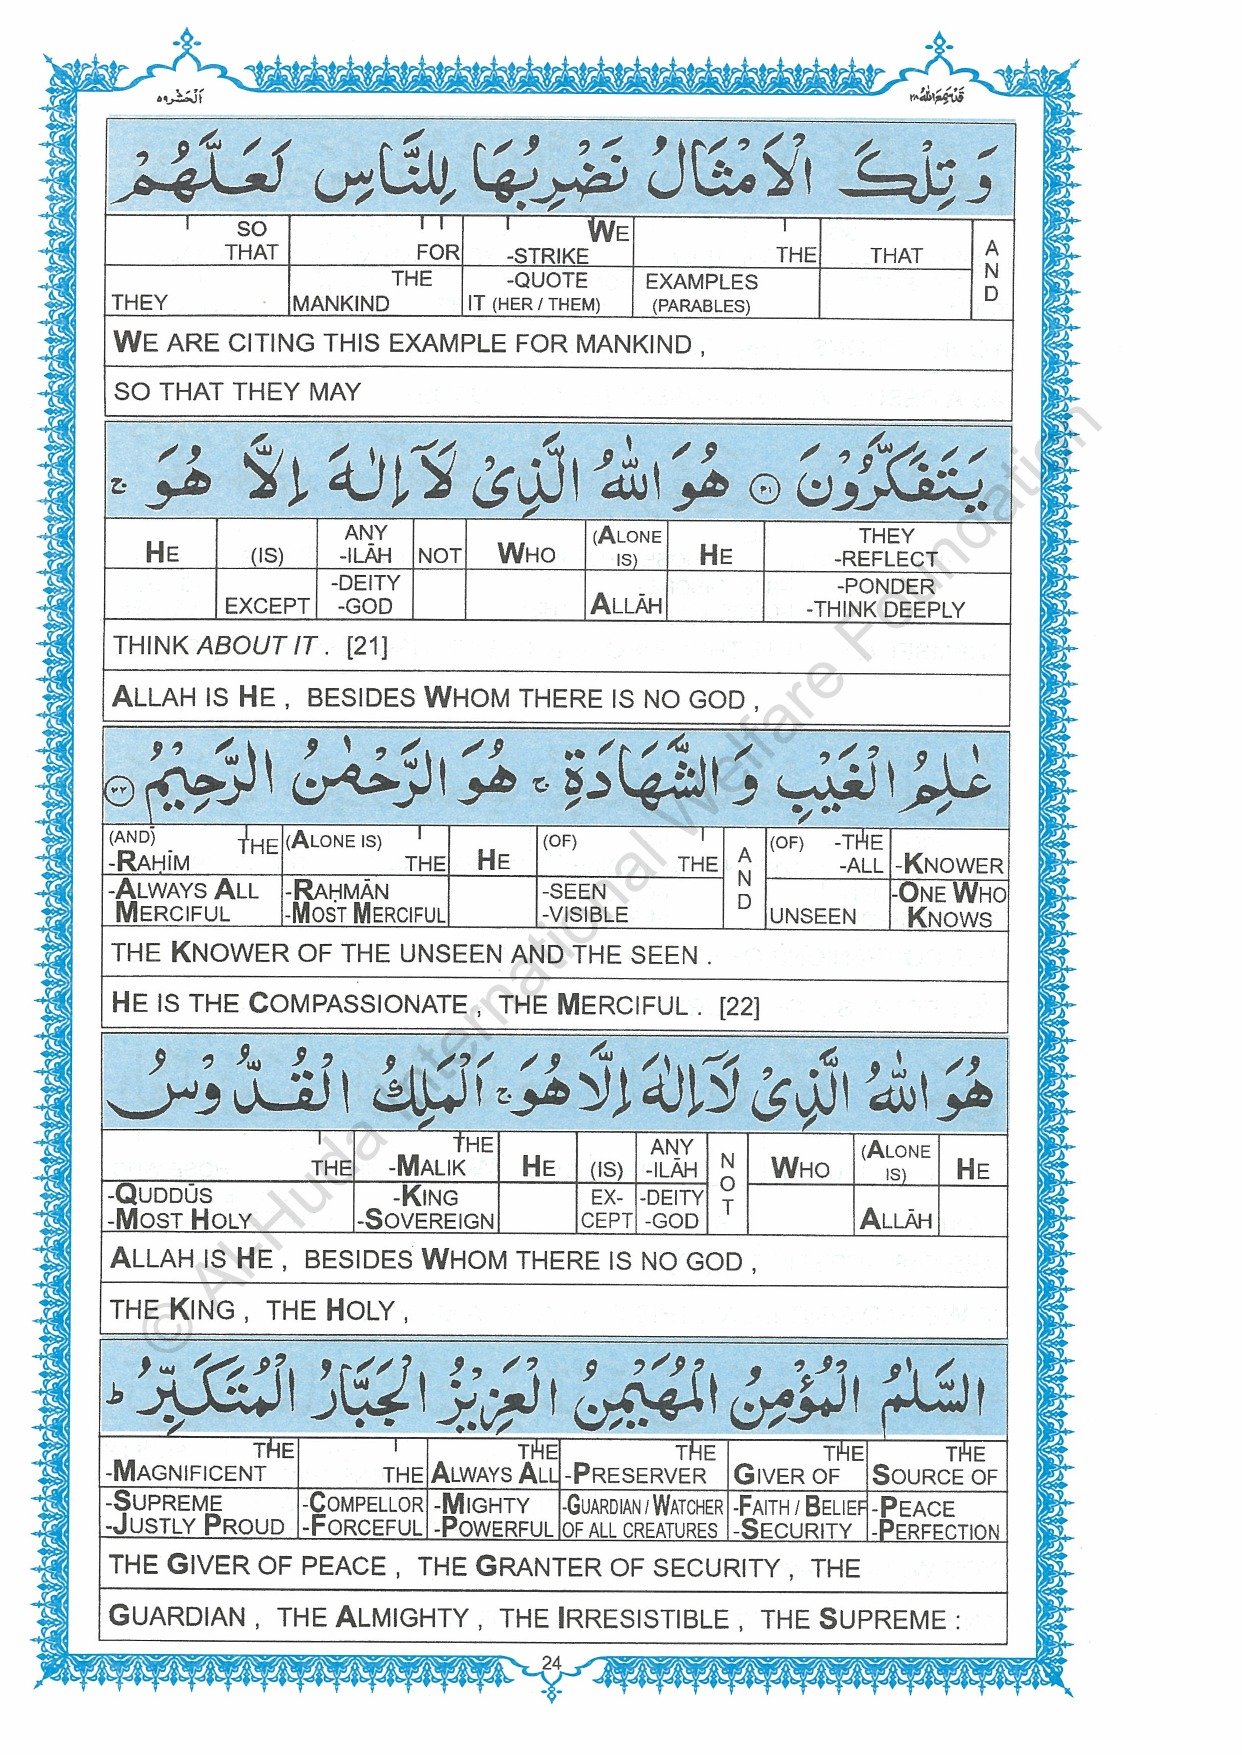 اَلْحَشْر ٥٩
قَدْ سَمِعَ اللّٰهُ ٢٨
وَ تِلْكَ الْاَمْثَالُ نَضْرِبُهَا لِلنَّاسِ لَعَلَّهُمْ
SO THAT | FOR | WE -STRIKE | THE | THAT | AND
THEY | THE MANKIND | -QUOTE IT (HER / THEM) | EXAMPLES (PARABLES)
WE ARE CITING THIS EXAMPLE FOR MANKIND ,
SO THAT THEY MAY
يَتَفَكَّرُوْنَ ﴿٢١﴾ هُوَ اللّٰهُ الَّذِیْ لَاۤ اِلٰهَ اِلَّا هُوَ ۚ
HE | (IS) | ANY -ILĀH | NOT | WHO | (ALONE IS) | HE | THEY -REFLECT
EXCEPT | -DEITY -GOD | ALLĀH | -PONDER -THINK DEEPLY
THINK ABOUT IT . [21]
ALLAH IS HE , BESIDES WHOM THERE IS NO GOD ,
عٰلِمُ الْغَيْبِ وَ الشَّهَادَةِ ۚ هُوَ الرَّحْمٰنُ الرَّحِيْمُ ﴿٢٢﴾
(AND) THE -RAḤĪM | (ALONE IS) THE | HE | (OF) THE | AND | (OF) -THE -ALL | -KNOWER
-ALWAYS ALL MERCIFUL | -RAḤMĀN -MOST MERCIFUL | -SEEN -VISIBLE | UNSEEN | -ONE WHO KNOWS
THE KNOWER OF THE UNSEEN AND THE SEEN .
HE IS THE COMPASSIONATE , THE MERCIFUL . [22]
هُوَ اللّٰهُ الَّذِیْ لَاۤ اِلٰهَ اِلَّا هُوَ ۚ اَلْمَلِكُ الْقُدُّوْسُ
THE | THE -MALIK | HE | (IS) | ANY -ILĀH | NOT | WHO | (ALONE IS) | HE
-QUDDŪS -MOST HOLY | -KING -SOVEREIGN | EX- CEPT | -DEITY -GOD | ALLĀH
ALLAH IS HE , BESIDES WHOM THERE IS NO GOD ,
THE KING , THE HOLY ,
السَّلٰمُ الْمُؤْمِنُ الْمُهَيْمِنُ الْعَزِيْزُ الْجَبَّارُ الْمُتَكَبِّرُ ؕ
THE -MAGNIFICENT | THE | THE ALWAYS ALL | THE -PRESERVER | THE GIVER OF | THE SOURCE OF
-SUPREME -JUSTLY PROUD | -COMPELLOR -FORCEFUL | -MIGHTY -POWERFUL | -GUARDIAN / WATCHER OF ALL CREATURES | -FAITH / BELIEF -SECURITY | -PEACE -PERFECTION
THE GIVER OF PEACE , THE GRANTER OF SECURITY , THE
GUARDIAN , THE ALMIGHTY , THE IRRESISTIBLE , THE SUPREME :
24
© Al-Huda International Welfare Foundation